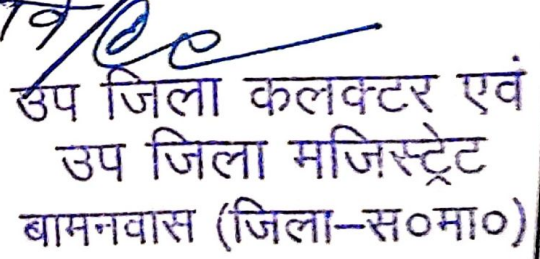 उप जिला कलक्टर एवं
उप जिला मजिस्ट्रेट
बामनवास (जिला-स०मा०)